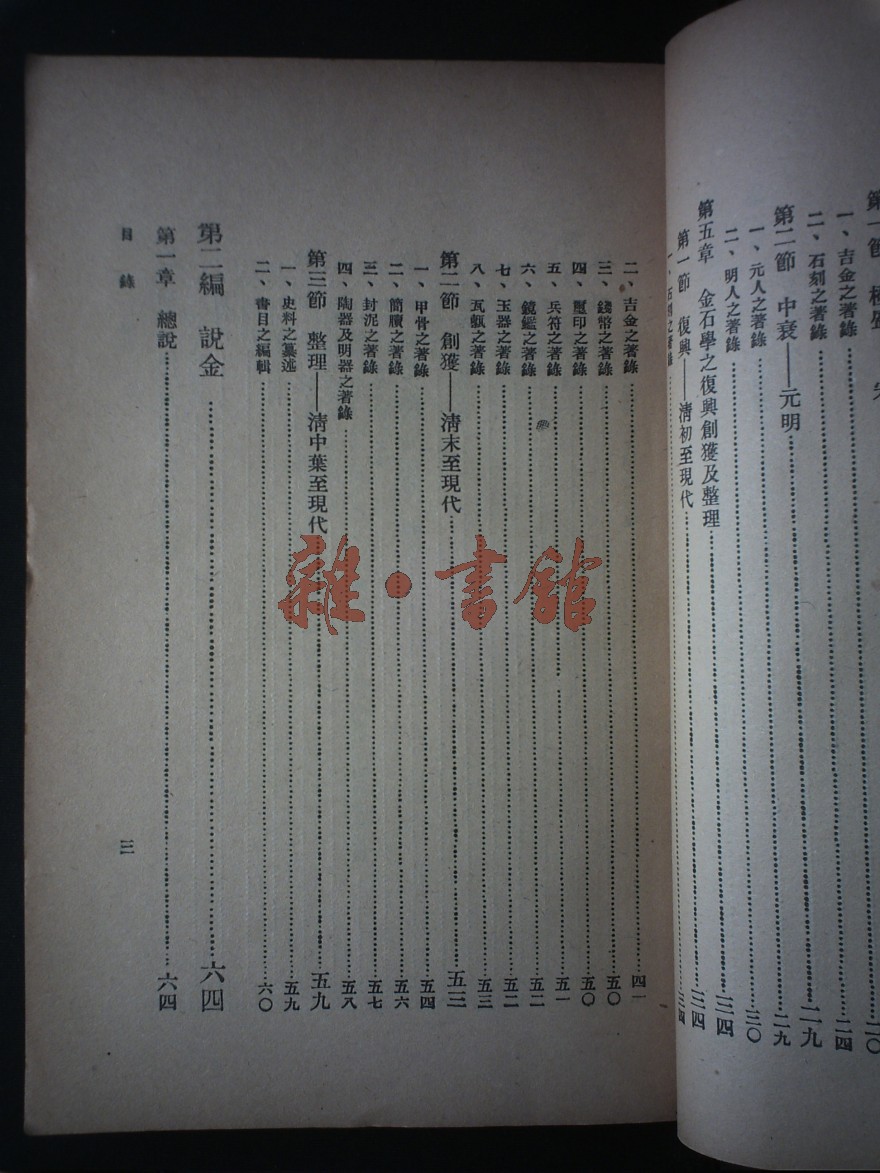 一、吉金之著錄……二四
二、石刻之著錄……二九
第二節　中衰——元明……二九
一、元人之著錄……三〇
二、明人之著錄……三四
第五章　金石學之復興創獲及整理……三四
第一節　復興——清初至現代……三四
一、石刻之著錄
二、吉金之著錄……四一
三、錢幣之著錄……五〇
四、璽印之著錄……五〇
五、兵符之著錄……五一
六、鏡鑑之著錄……五二
七、玉器之著錄……五二
八、瓦甎之著錄……五三
第二節　創獲——清末至現代……五三
一、甲骨之著錄……五四
二、簡牘之著錄……五六
三、封泥之著錄……五七
四、陶器及明器之著錄……五八
第三節　整理——清中葉至現代……五九
一、史料之纂述……五九
二、書目之編輯……六〇
第二編　說金……六四
第一章　總說……六四
目錄
三
雜·書館